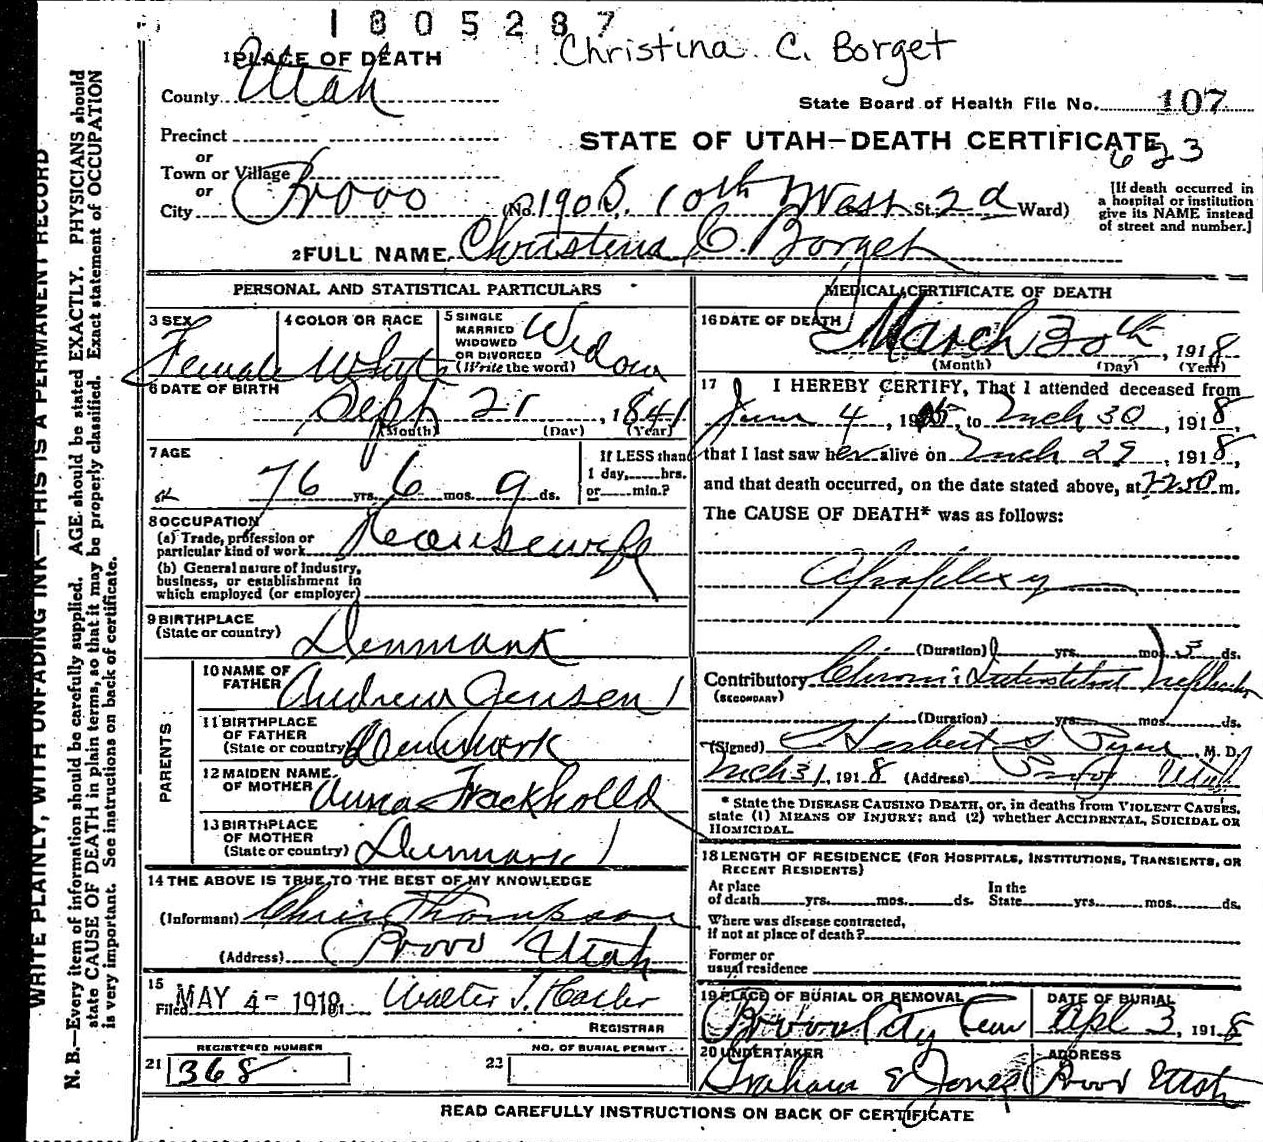 1805287
Christina C. Borget
1 PLACE OF DEATH
County Utah
State Board of Health File No. 107
Precinct
STATE OF UTAH—DEATH CERTIFICATE
623
or
Town or Village
or
City Provo (No. 190 S. 10th West St. 2d Ward)
[If death occurred in
a hospital or institution
give its NAME instead
of street and number.]
2 FULL NAME Christina C. Borget
PERSONAL AND STATISTICAL PARTICULARS
3 SEX Female
4 COLOR OR RACE White
5 SINGLE
MARRIED
WIDOWED
OR DIVORCED
(Write the word) Widow
6 DATE OF BIRTH
Sept 21, 1841
(Month) (Day) (Year)
7 AGE
76 yrs. 6 mos. 9 ds.
If LESS than
1 day, hrs.
or min.?
8 OCCUPATION
(a) Trade, profession or
particular kind of work Housewife
(b) General nature of industry,
business, or establishment in
which employed (or employer)
9 BIRTHPLACE
(State or country) Denmark
PARENTS
10 NAME OF
FATHER Andrew Jensen
11 BIRTHPLACE
OF FATHER
(State or country) Denmark
12 MAIDEN NAME
OF MOTHER Anna
13 BIRTHPLACE
OF MOTHER
(State or country) Denmark
14 THE ABOVE IS TRUE TO THE BEST OF MY KNOWLEDGE
(Informant) Chris Thompson
(Address) Provo Utah
15
Filed MAY 4-1918, Walter T. Hasler
REGISTRAR
REGISTERED NUMBER
21 368
NO. OF BURIAL PERMIT
22
MEDICAL CERTIFICATE OF DEATH
16 DATE OF DEATH
March 30th, 1918
(Month) (Day) (Year)
17 I HEREBY CERTIFY, That I attended deceased from
June 4, 191, to Mch 30, 1918,
that I last saw her alive on Mch 29, 1918,
and that death occurred, on the date stated above, at m.
The CAUSE OF DEATH* was as follows:
Apoplexy
(Duration) yrs. mos. 3 ds.
Contributory Chronic Interstitial Nephritis
(SECONDARY)
(Duration) yrs. mos. ds.
(Signed) Herbert S. Pyne, M. D.
Mch 31, 1918 (Address) Provo Utah
* State the DISEASE CAUSING DEATH, or, in deaths from VIOLENT CAUSES,
state (1) MEANS OF INJURY; and (2) whether ACCIDENTAL, SUICIDAL OR
HOMICIDAL.
18 LENGTH OF RESIDENCE (FOR HOSPITALS, INSTITUTIONS, TRANSIENTS, OR
RECENT RESIDENTS)
At place
of death yrs. mos. ds.
In the
State yrs. mos. ds.
Where was disease contracted,
if not at place of death?
Former or
usual residence
19 PLACE OF BURIAL OR REMOVAL
Provo City Cem
DATE OF BURIAL
Apl 3, 1918
20 UNDERTAKER
Graham & Jones
ADDRESS
Provo Utah
READ CAREFULLY INSTRUCTIONS ON BACK OF CERTIFICATE
WRITE PLAINLY, WITH UNFADING INK—THIS IS A PERMANENT RECORD
N. B.—Every item of information should be carefully supplied. AGE should be stated EXACTLY. PHYSICIANS should
state CAUSE OF DEATH in plain terms, so that it may be properly classified. Exact statement of OCCUPATION
is very important. See instructions on back of certificate.